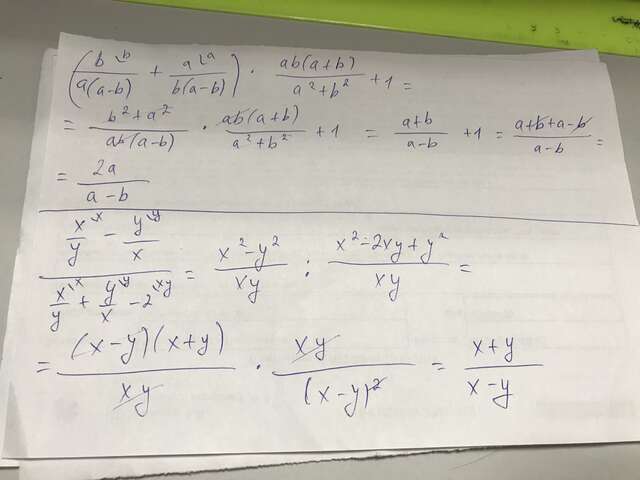 (b^{\b}/a(a-b) + a^{\a}/b(a-b)) · ab(a+b)/a²+b² + 1 =
= b²+a²/ab(a-b) · ab(a+b)/a²+b² + 1 = a+b/a-b + 1 = a+b+a-b/a-b =
= 2a/a-b
x^{\x}/y - y^{\y}/x / x^{\x}/y + y^{\y}/x - 2^{\xy} = x²-y²/xy : x²-2xy+y²/xy =
= (x-y)(x+y)/xy · xy/(x-y)² = x+y/x-y